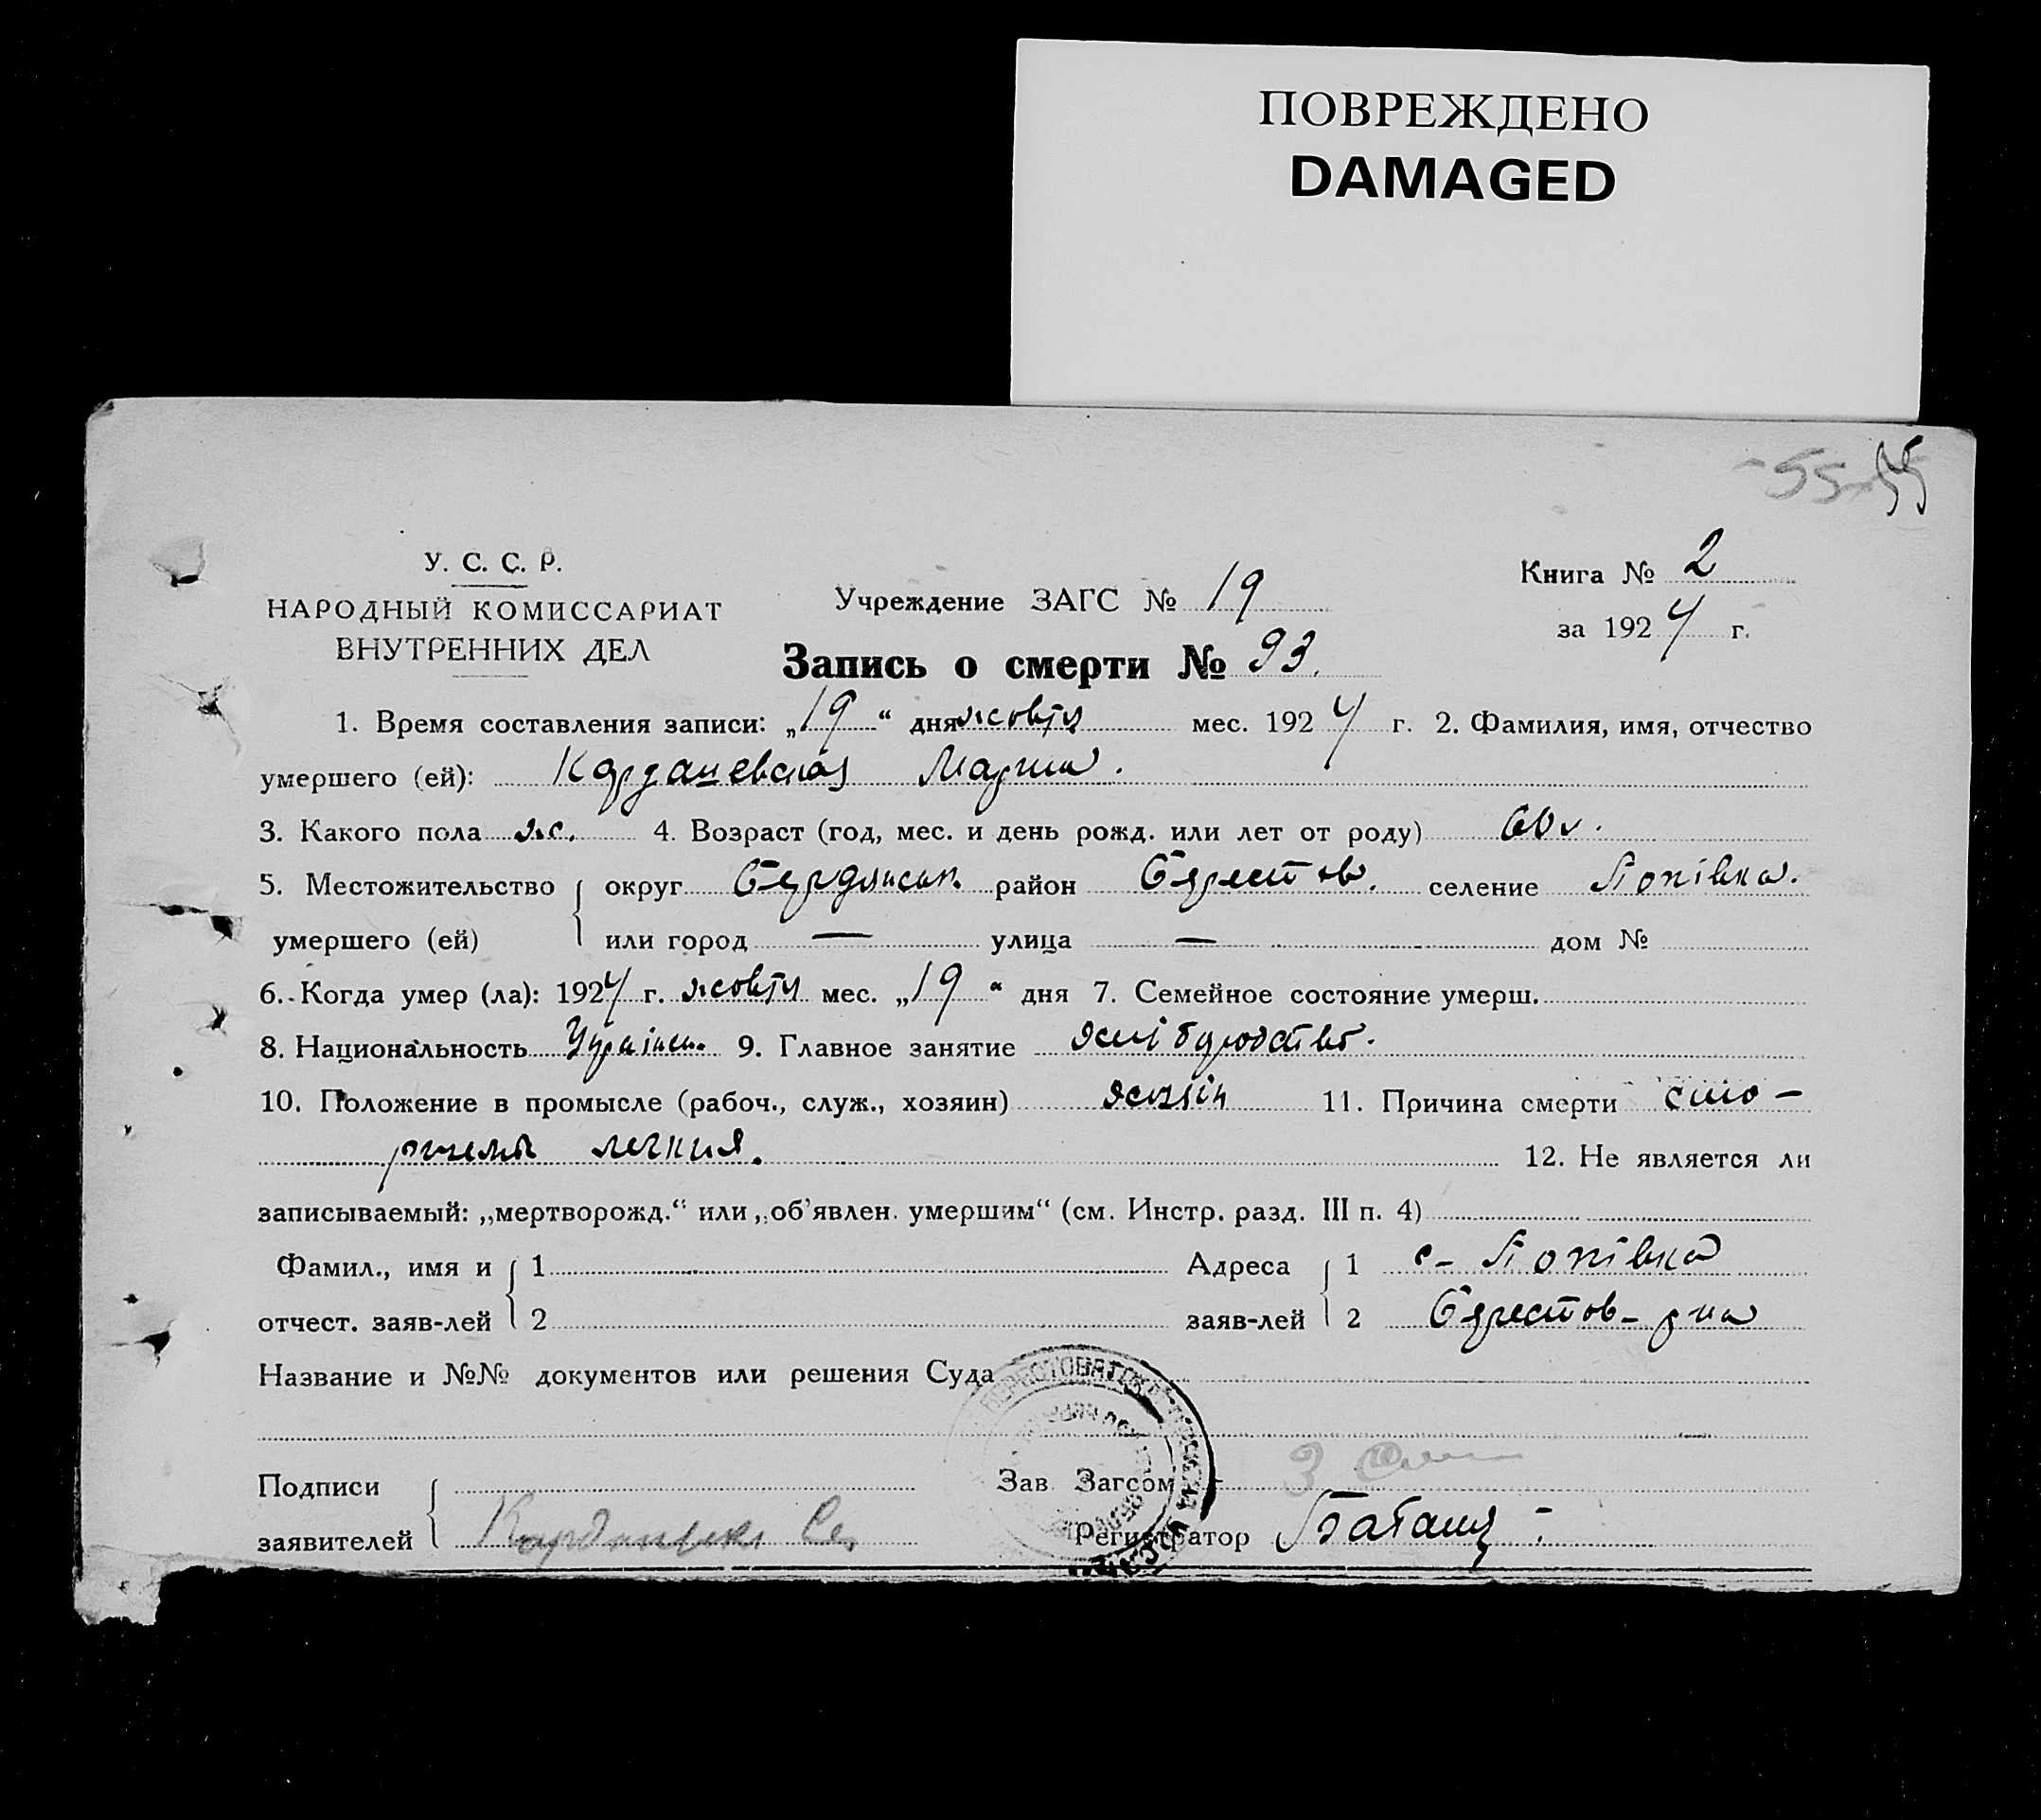 ПОВРЕЖДЕНО
DAMAGED
55 55
У. С. С. Р.
НАРОДНЫЙ КОМИССАРИАТ
ВНУТРЕННИХ ДЕЛ
Учреждение ЗАГС № 19
Книга № 2
за 1924 г.
Запись о смерти № 93.
1. Время составления записи: „19“ дня жовтя мес. 1924 г. 2. Фамилия, имя, отчество
умершего (ей): Кардашевская Мария.
3. Какого пола ж. 4. Возраст (год, мес. и день рожд. или лет от роду) 60
5. Местожительство округ Бердянськ. район Берестов. селение Попівка.
умершего (ей) или город — улица — дом №
6. Когда умер (ла): 1924 г. жовтя мес. „19“ дня 7. Семейное состояние умерш.
8. Национальность Україн. 9. Главное занятие хліборобство.
10. Положение в промысле (рабоч., служ., хозяин) хозяін 11. Причина смерти
легких.
12. Не является ли
записываемый: „мертворожд.“ или „об’явлен. умершим“ (см. Инстр. разд. III п. 4)
Фамил., имя и 1 Адреса 1 с- Попівка
отчест. заяв-лей 2 заяв-лей 2 Берестов- р-на
Название и №№ документов или решения Суда
Подписи Зав. Загсом
заявителей Регистратор